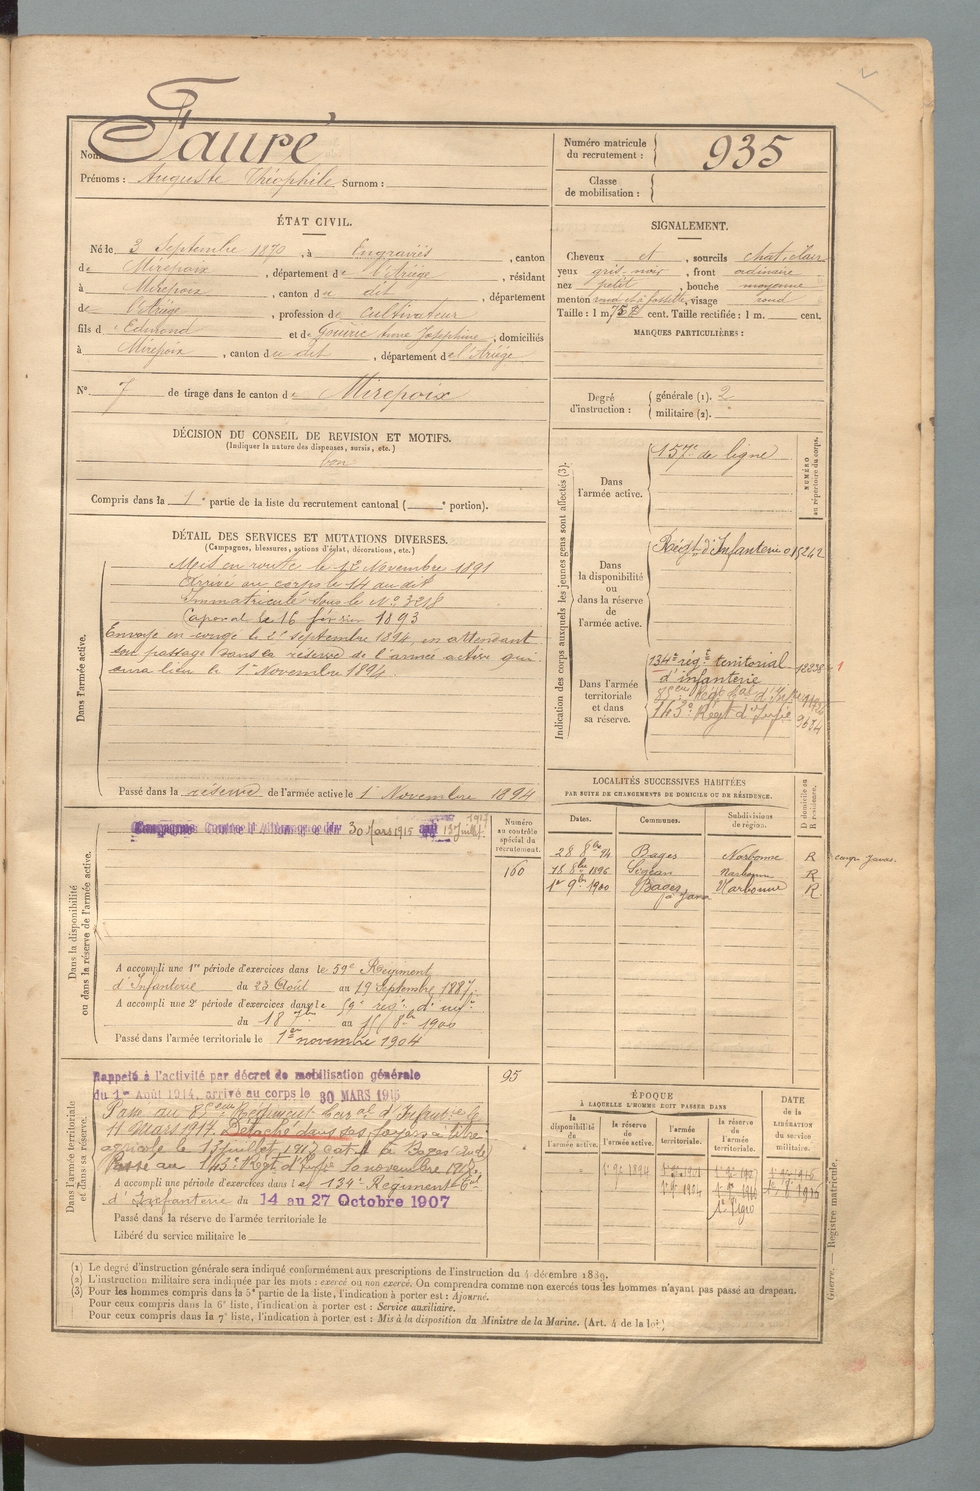 Nom : Fauré
Prénoms : Auguste Théophile Surnom :
Numéro matricule du recrutement : 935
Classe de mobilisation :
ÉTAT CIVIL.
Né le 3 Septembre 1870, à Engraviès, canton
de Mirepoix, département de l'Ariège, résidant
à Mirepoix, canton du dit, département
de l'Ariège, profession de cultivateur
fils d'Edmond et de Gouiric Anne Joséphine, domiciliés
à Mirepoix, canton du dit, département de l'Ariège
SIGNALEMENT.
Cheveux et, sourcils chat. clair
yeux gris-noir, front ordinaire
nez petit, bouche moyenne
menton rond et à fossette, visage rond
Taille : 1 m. cent. Taille rectifiée : 1 m. cent.
MARQUES PARTICULIÈRES :
N° 7 de tirage dans le canton de Mirepoix
Degré d'instruction : générale (1). 2
militaire (2).
DÉCISION DU CONSEIL DE REVISION ET MOTIFS.
(Indiquer la nature des dispenses, sursis, etc.)
bon
Compris dans la 1e partie de la liste du recrutement cantonal ( e portion).
DÉTAIL DES SERVICES ET MUTATIONS DIVERSES.
(Campagnes, blessures, actions d'éclat, décorations, etc.)
Dans l'armée active.
Mis en route le 12 Novembre 1891
Arrivé au corps le 14 du dit
Immatriculé sous le N° 3218
Caporal le 16 février 1893
Envoyé en congé le 2 septembre 1894 en attendant
son passage dans la réserve de l'armée active qui
aura lieu le 1er Novembre 1894
Passé dans la réserve de l'armée active le 1er Novembre 1894
Indication des corps auxquels les jeunes gens sont affectés (3).
NUMÉRO au répertoire du corps.
Dans l'armée active.
157e de ligne
Dans la disponibilité ou dans la réserve de l'armée active.
Régt d'Infanterie 015242
Dans l'armée territoriale et dans sa réserve.
134e régt territorial
d'infanterie
143e Régt d'Infie
LOCALITÉS SUCCESSIVES HABITÉES
PAR SUITE DE CHANGEMENTS DE DOMICILE OU DE RÉSIDENCE.
Dates. Communes. Subdivisions de région. D domicile ou R résidence.
28 8bre 94 Bages Narbonne R
18 8bre 1896 Sigean Narbonne R
1er 9bre 1900 Bages Narbonne R
Dans la disponibilité ou dans la réserve de l'armée active.
Campagnes Contre l'Allemagne du 30 Mars 1915 au 13 Juillet 1917
Numéro au contrôle spécial du recrutement.
160
A accompli une 1re période d'exercices dans le 59e Régiment
d'Infanterie du 23 Août au 19 Septembre 1897
A accompli une 2e période d'exercices dans le 59e régt d'infie
du 18 7bre au 15 8bre 1900
Passé dans l'armée territoriale le 1er novembre 1904
Dans l'armée territoriale et dans sa réserve.
Rappelé à l'activité par décret de mobilisation générale
du 1er Août 1914, arrivé au corps le 30 MARS 1915
95
Passé au 85eme Régiment terral d'Infantrie le
11 Mars 1917. Détaché dans ses foyers à titre
agricole le 13 juillet 1917 Cat. A à Bages Aude
Passé au 143e Régt d'Infie 10 novembre 1918.
A accompli une période d'exercices dans le 134e Régiment tal
d'Infanterie du 14 au 27 Octobre 1907
Passé dans la réserve de l'armée territoriale le
Libéré du service militaire le
ÉPOQUE
À LAQUELLE L'HOMME DOIT PASSER DANS
la disponibilité de l'armée active. la réserve de l'armée active. l'armée territoriale. la réserve de l'armée territoriale.
DATE de la LIBÉRATION du service militaire.
1er 9bre 1894
1er 9bre 1904
Guerre. Registre matricule.
(1) Le degré d'instruction générale sera indiqué conformément aux prescriptions de l'instruction du 4 décembre 1889.
(2) L'instruction militaire sera indiquée par les mots : exercé ou non exercé. On comprendra comme non exercés tous les hommes n'ayant pas passé au drapeau.
(3) Pour les hommes compris dans la 5e partie de la liste, l'indication à porter est : Ajourné.
Pour ceux compris dans la 6e liste, l'indication à porter est : Service auxiliaire.
Pour ceux compris dans la 7e liste, l'indication à porter est : Mis à la disposition du Ministre de la Marine. (Art. 4 de la loi)